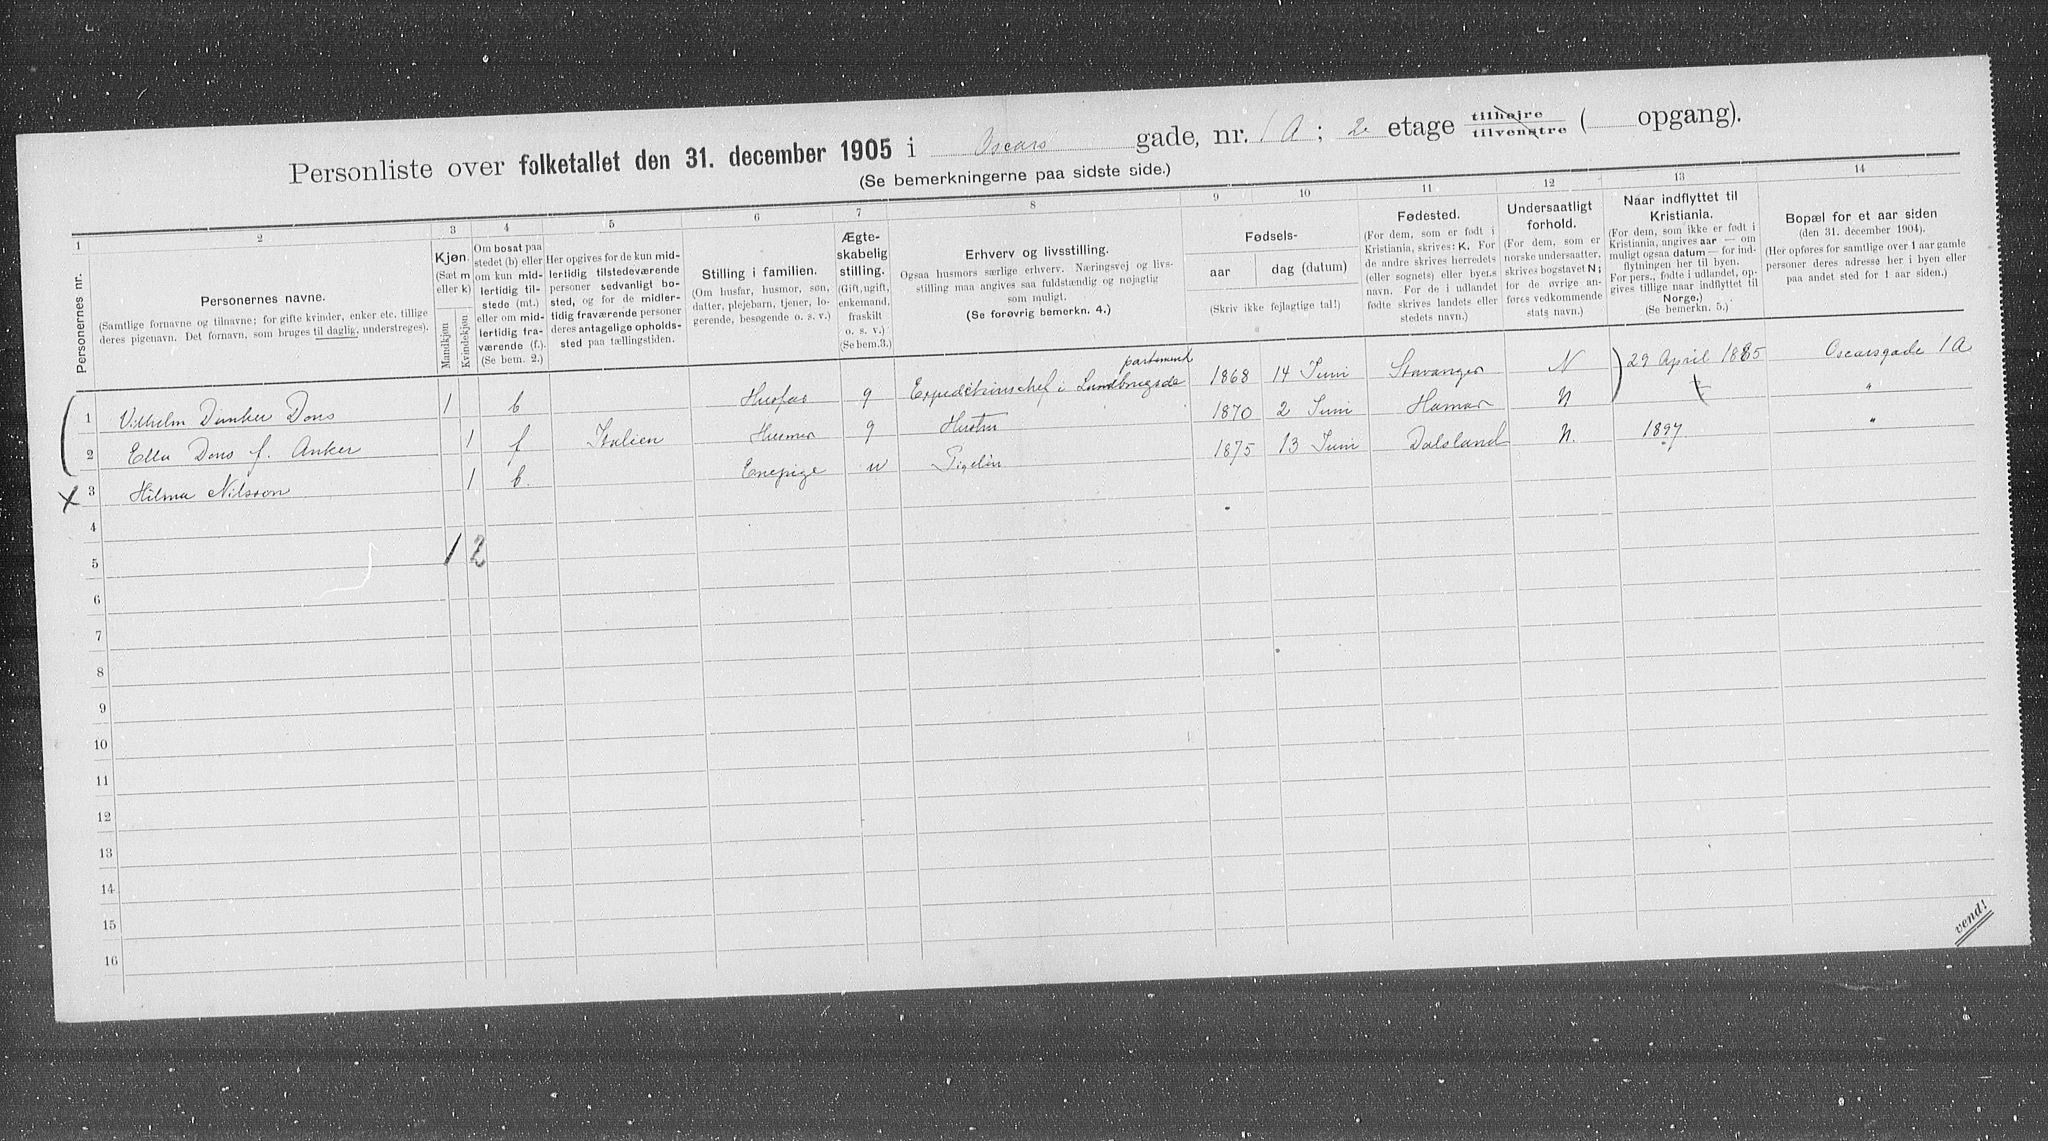 Personliste over folketallet den 31. december 1905 i Oscars gade, nr. 1 A; 2 etage tilhøjre tilvenstre ( opgang).
(Se bemerkningerne paa sidste side.)
1 2 3 4 5 6 7 8 9 10 11 12 13 14
Personernes nr.
Personernes navne.
(Samtlige fornavne og tilnavne; for gifte kvinder, enker etc. tillige
deres pigenavn. Det fornavn, som bruges til daglig, understreges).
Kjøn.
(Sæt m
eller k)
Mandkjøn
Kvindekjøn
Om bosat paa
stedet (b) eller
om kun mid-
lertidig til-
stede (mt.)
eller om mid-
lertidig fra-
værende (f.).
(Se bem. 2.)
Her opgives for de kun mid-
lertidig tilstedeværende
personer sedvanligt bo-
sted, og for de midler-
tidig fraværende personer
deres antagelige opholds-
sted paa tællingstiden.
Stilling i familien.
(Om husfar, husmor, søn,
datter, plejebarn, tjener, lo-
gerende, besøgende o. s. v.)
Ægte-
skabelig
stilling.
(Gift, ugift,
enkemand,
fraskilt
o. s. v.)
(Se bem.3.)
Erhverv og livsstilling.
Ogsaa husmors særlige erhverv. Næringsvej og livs-
stilling maa angives saa fuldstændig og nøjaglig
som muligt.
(Se forøvrig bemerkn. 4.)
Fødsels-
aar
dag (datum)
(Skriv ikke fejlagtige tal!)
Fødested.
(For dem, som er født i
Kristiania, skrives: K. For
de andre skrives herredets
(eller sognets) eller byens
navn. For de i udlandet
fødte skrives landets eller
stedets navn.)
Undersaatligt
forhold.
(For dem, som er
norske undersaatter,
skrives bogstavet N;
for de øvrige an-
føres vedkommende
stats navn.)
Naar indflyttet til
Kristiania.
(For dem, som ikke er født i
Kristiania, angives aar — om
muligt ogsaa datum — for ind-
flytningen her til byen.
For pers., fødte i udlandet, op-
gives tillige naar indflyttet til
Norge.)
(Se bemerkn. 5.)
Bopæl for et aar siden
(den 31. december 1904).
(Her opføres for samtlige over 1 aar gamle
personer deres adresse her i byen eller
paa andet sted for 1 aar siden.)
1 Vilhelm Dunker Dons 1 b Husfar g Expeditionschef i Landbrugsde partement 1868 14 Juni Stavanger N 29 April 1885 Oscarsgade 1 A
2 Ella Dons f. Anker 1 f Italien Husmor g Hustru 1870 2 Juni Hamar N "
3 Hilma Nilsson 1 b. Enepige u Pige 1875 13 Juni Dalsland N. 1897 "
4
1 2
5
6
7
8
9
10
11
12
13
14
15
16
vend!